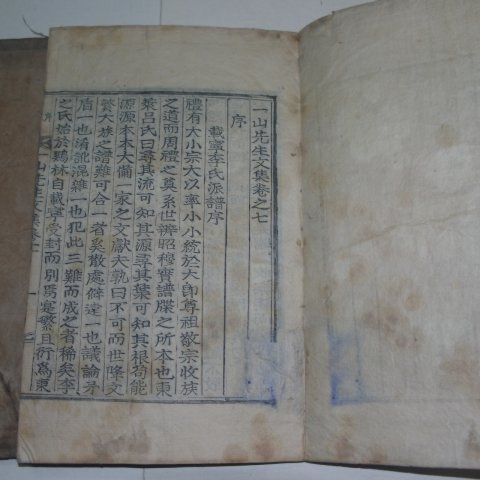 一山先生文集卷之七
序
載寧李氏派譜序
禮有大小宗大以率小小統於大即尊祖敬宗收族
之道而周禮之奠系世辨昭穆實譜牒之所本也東
萊呂氏曰尋其流可知其源尋其葉可知其根苟能
源源本本大備一家之文獻夫孰曰不可而世降文
繁大族之譜難可合一者矣散處僻遠一也議論矛
盾一也淆訛混雜一也犯此三難而成之者稀矣李
之氏始於鷄林自載寧受封而別爲寔繁且衍爲東
一山先生文集卷七